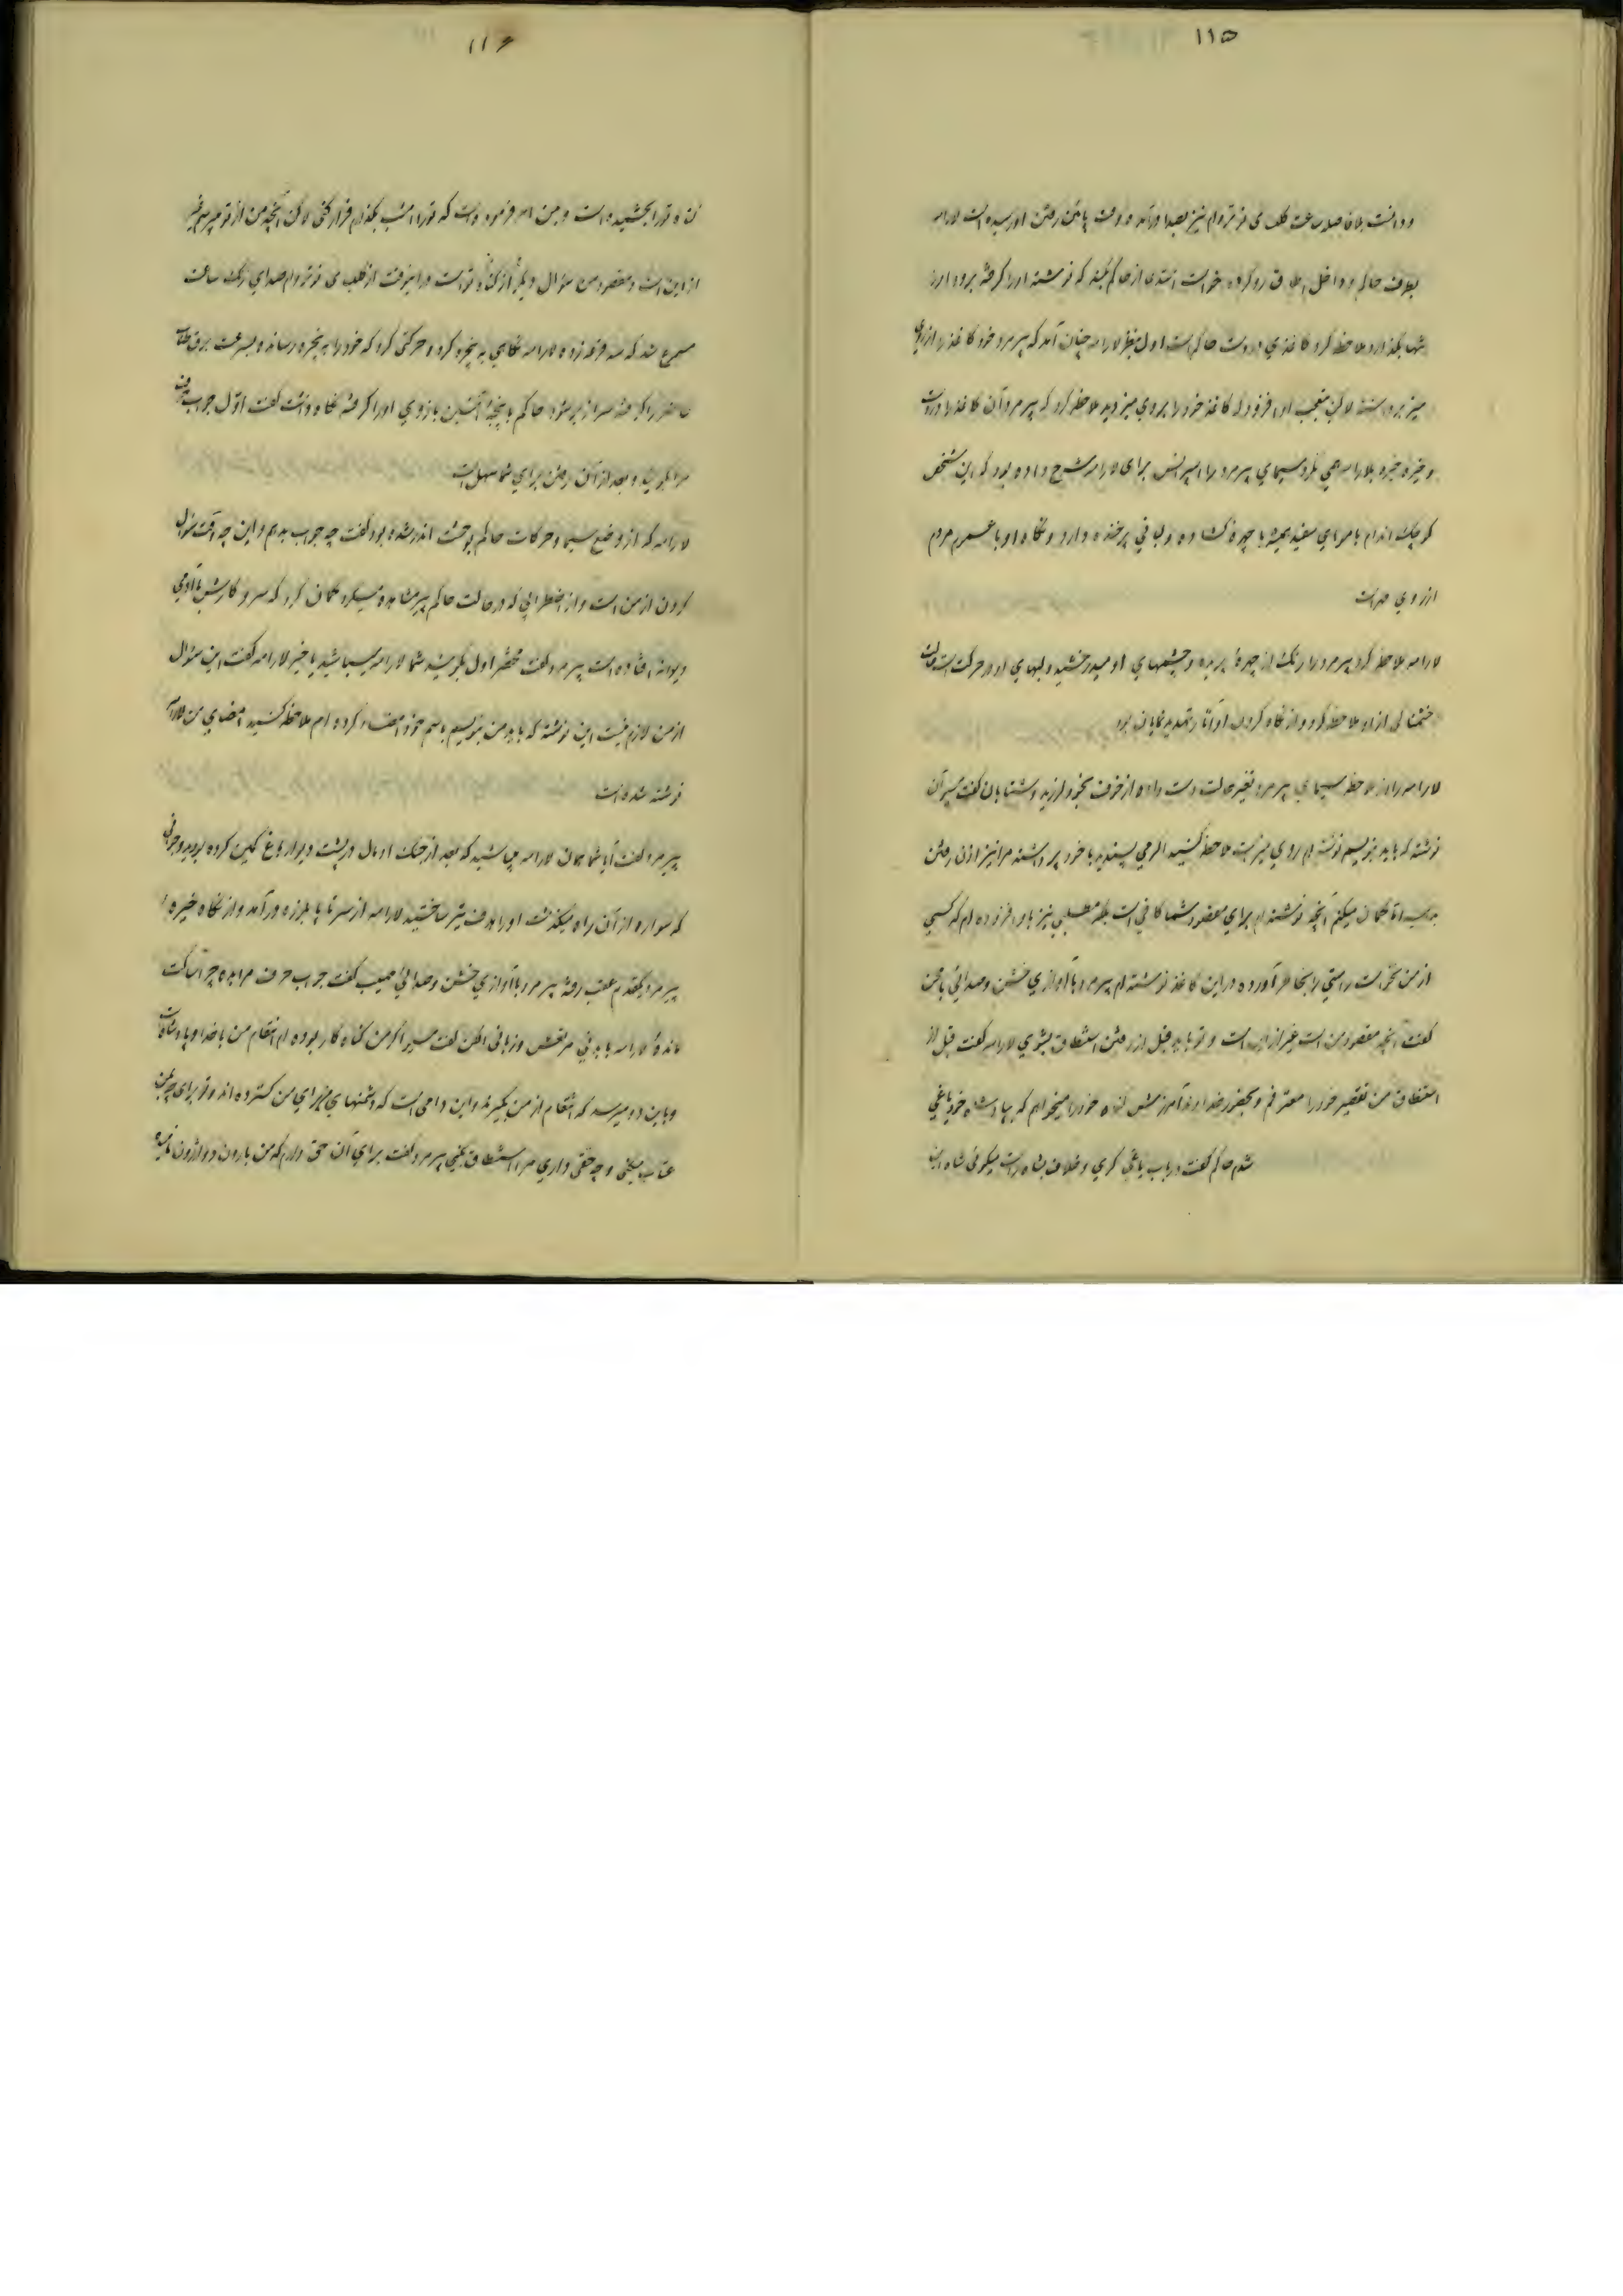 ۱۱۵
و دانست بلافاصله ساعت کلیسای نوتردام نیز بصدا درآمد و وقت پائین رفتن او رسیده است لارامه
بطرف حاکم و داخل اطاق رو کرده خواست استدعا از حاکم کند که نوشته او را گرفته برود او را
تنها بگذارد ملاحظه کرد کاغذی در دست حاکم است اول بنظر لارامه چنان آمد که پیرمرد خود کاغذ را از روی
میز برداشته لاکن تعجب او افزود که کاغذ خود را بروی میز دید ملاحظه کرد که پیرمرد آن کاغذ را در دست
و خیره خیره بلارامه می نگرد سیمای پیرمرد را اسپرانس برای لارامه شرح داده بود که این شخص
کوچک اندام با موهای سفید همیشه با چهره گشاده و لبانی پرخنده دارد و نگاه او با عموم مردم
از روی مهر است
لارامه ملاحظه کرد پیرمرد را رنگ از چهره پریده و چشمهای او میدرخشید و لبهای او در حرکت است حالت
خشمناکی از او ملاحظه کرد و از نگاه کردن او آثار تهدید نمایان بود
لارامه را از ملاحظه سیمای پیرمرد تغییر حالت دست داده از خوف بخود لرزید و شتابان گفت مسیر آن
نوشته که باید بنویسم نوشته ام روی میز است ملاحظه کنید اگر می پسندید با خود برداشته مرا نیز اذن رفتن
بدهید اما گمان میکنم آنچه نوشته ام برای مقصود شما کافی است بلکه مطلبی نیز باو افزوده ام که کسی
از من نخواست راستی را بخاطر آورده در این کاغذ نوشته ام پیرمرد با آوازی خشن و صدائی
گفت آنچه مقصود من است غیر از این است و تو باید قبل از رفتن استنطاق بشوی لارامه گفت قبل از
استنطاق من تقصیر خود را معترفم و بحضور خداوند آمرزش گناه خود را میخواهم که بپادشاه خود یاغی
شدم حاکم گفت در باب یاغی گری و خلاف بشاه راست میگوئی شاه این
۱۱۶
گناه تو را بخشیده است و بمن امر فرموده است که تو را امشب بگذارم فرار کنی لاکن آنچه من از تو میپرسم غیر
از این است و مقصود من سؤال دیگر از گناه تو است در اینوقت از کلیسای نوتردام صدای زنگ ساعت
مسموع شد که سه مرتبه زده لارامه نگاهی به پنجره کرد و حرکتی کرد که خود را به پنجره رسانده و بسرعت برق طناب
حاضر را گرفته سرازیر شود حاکم با پنجه آهنین بازوی او را گرفته نگاه داشت گفت اول جواب حرف
مرا بگوئید و بعد از آن رفتن برای شما سهل است
لارامه که از وضع سیما و حرکات حاکم بوحشت اندر شده بود گفت چه جواب بدهم و این چه وقت سؤال
کردن از من است و از اضطرابی که در حالت حاکم پیر مشاهده میکرد گمان کرد که سر و کارش با آدمی
دیوانه افتاده است پیرمرد گفت مختصر اول بگوئید شما لارامه میباشید یا خیر لارامه گفت این سؤال
از من لازم نیست این نوشته که باید من بنویسم باسم خود امضاء کرده ام ملاحظه کنید امضای من لارامه
نوشته شده است
پیرمرد گفت آیا شما همان لارامه میباشید که بعد از جنگ اومال در پشت دیوار باغ کمین کرده بودید و جوانی
که سواره از آن راه میگذشت او را هدف تیر ساختید لارامه از سر تا پا بلرزه درآمد و از نگاه خیره
پیرمرد یکقدم عقب رفته پیرمرد با آوازی خشن و صدائی مهیب گفت جواب حرف مرا بده چرا ساکت
مانده لارامه با بدنی مرتعش و زبانی الکن گفت مسیر اگر من گناه کار بوده ام انتقام من با خدا و پادشاه است
و باین دو میرسد که انتقام از من بگیرند و این دامی است که دشمنهای من برای من گسترده اند و تو برای چه بمن
عتاب میکنی و چه حقی داری مرا استنطاق بکنی پیرمرد گفت برای آن حق دارم که من بارون دو